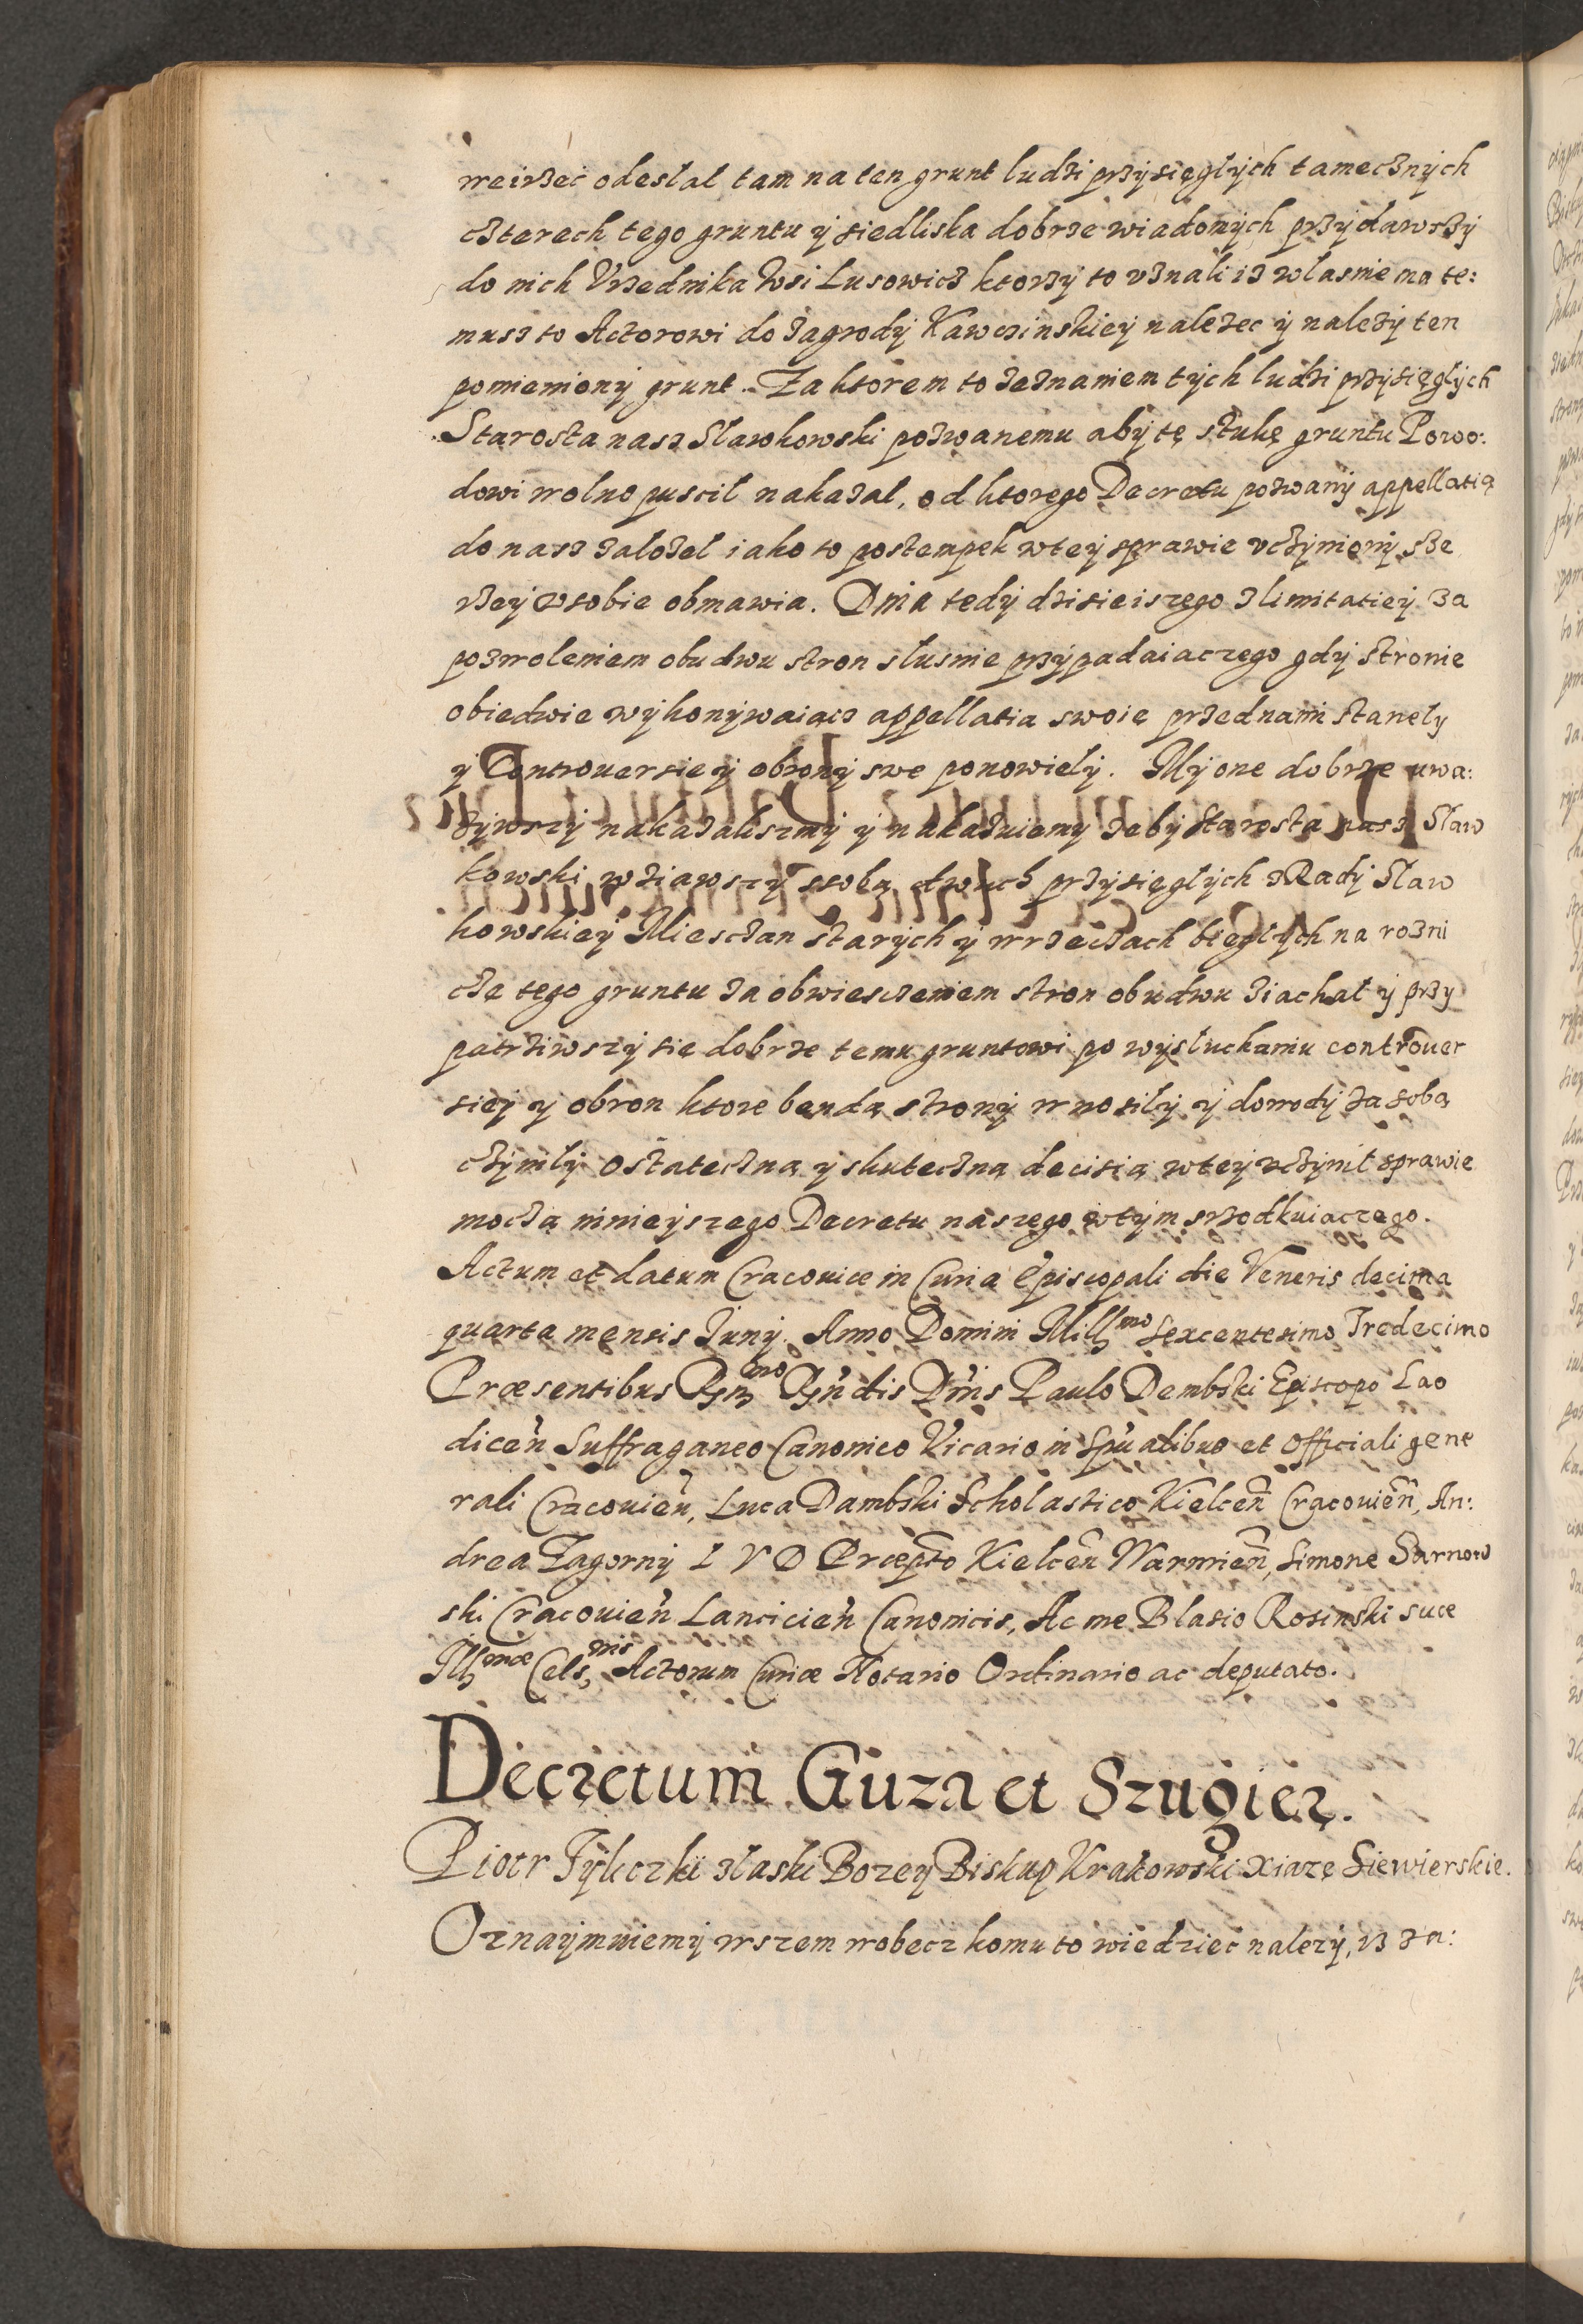 weirzeć odesłał tam na ten grunt ludzi przysięgłych tamecznych
czterech tego gruntu y siedliska dobrze wiadomych przydawszy
do nich Vrzednika Wsi Lusowicz ktorzy to vznali iz własnie ma te:
musz to Actorowi do zagrody Kawczinskiey należec y należy ten
pomieniony grunt. Za ktorem to zeznaniem tych ludzi przysięgłych
Starosta nasz Sławkowski pozwanemu aby tę sztukę gruntu Powo:
dowi wolno puscił nakazał, od ktorego Decretu pozwany appellatią
do nasz założeł iako to postempek w tey sprawie vczyniony sze
rzey w sobie obmawia. Dnia tedy dzisieiszego z limitatiey za
pozwoleniem obudwu stron słusnie przypadaiaczego gdy stronie
obiedwie wykonywaiącz appellatia swoię przed nami stanęły
y Controuersie y obrony swe ponowieły. My one dobrze uwa:
żywszy nakazaliszmy y nakazuiemy żeby Starosta nasz Sław
kowski wziawszy z sobą dwuch przysięgłych z Rady Sław
kowskiey Miesczan starych y w rzeczach biegłych na rozni
czę tego gruntu za obwiesczeniem stron obudwu ziachał y przy
patrziwszy się dobrze temu gruntowi po wysłuchaniu controuer
siey y obron ktore bendą strony wnosiły y dowody za sobą
czyniły ostateczną y skuteczną decisią w tey vczynił sprawie
moczą ninieyszego Decretu naszego w tym srzodkuiaczego.
Actum et datum Cracouiæ in Curia Episcopali die Veneris decima
quarta mensis Iunij. Anno Domini Mill͠mo Sexcentesimo Tredecimo
Præsentibus R͠mo R͠ndis D͠nis Paulo Dembski Episcopo Lao
dicen̄ Suffraganeo Canonico Vicario in Sp͠ualibus et Officiali gene
rali Cracouien̄, Luca Dambski Scholastico Kielcen̄ Cracouien̄, An:
drea Zagorny I V D Præp͠to Kielcen̄ Warmien̄, Simone Sarnow
ski Cracouien̄ Lancicien̄ Canonicis, Ac me Blasio Rosinski suæ
Ill͠mæ Cels͠nis Actorum Curiæ Notario Ordinario ac deputato.
Decretum Guza et Szugier.
Piotr Tyliczki z łaski Bozey Biskup Krakowski Xiaze Siewierskie.
Oznaymuiemy wszem wobecz komu to wiedzieć nalezy, iz za: